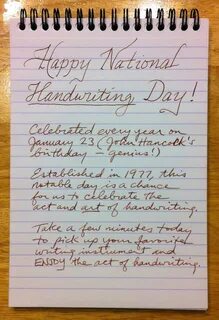 Happy National
Handwriting Day!
Celebrated every year on
January 23 (John Hancock's
birthday – genius!)
Established in 1977, this
notable day is a chance
for us to celebrate the
act and art of handwriting.
Take a few minutes today
to pick up your favorite
writing instrument and
ENJOY the act of handwriting.